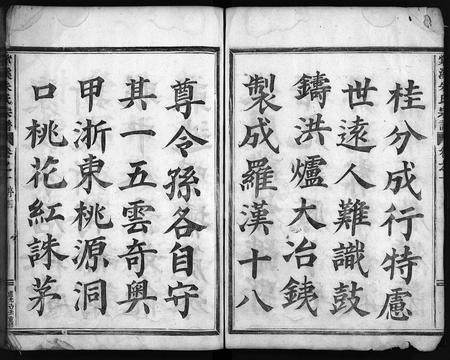 桂分成行特慮
世遠人難識鼓
鑄洪爐大冶銕
製成羅漢十八
尊令孫各自守
其一五雲奇奧
甲浙東桃源洞
口桃花紅誅茅